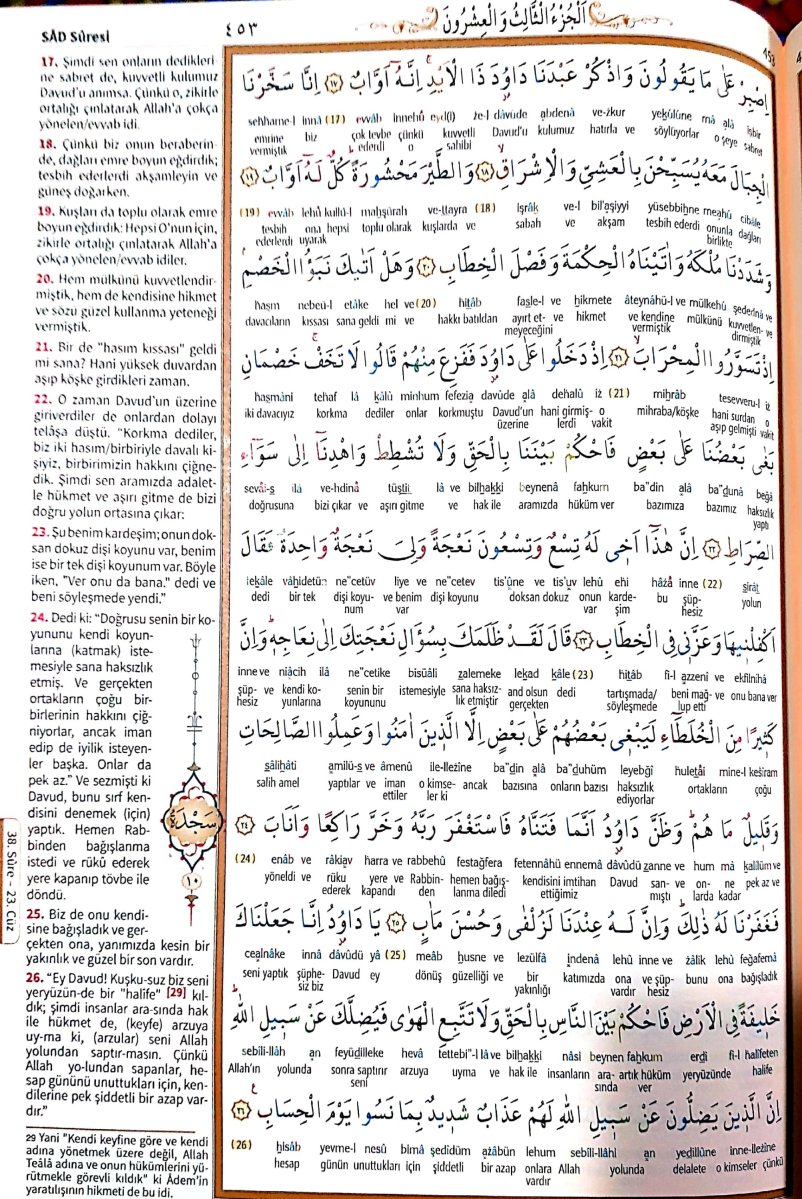 SÂD Sûresi
٤٥٣
اَلْجُزْءُ الثَّالِثُ وَالْعِشْرُونَ
453
17. Şimdi sen onların dedikleri-
ne sabret de, kuvvetli kulumuz
Davud'u anımsa. Çünkü o, zikirle
ortalığı çınlatarak Allah'a çokça
yönelen/evvab idi.
18. Çünkü biz onun beraberin-
de, dağları emre boyun eğdirdik;
tesbih ederlerdi akşamleyin ve
güneş doğarken.
19. Kuşları da toplu olarak emre
boyun eğdirdik: Hepsi O'nun için,
zikirle ortalığı çınlatarak Allah'a
çokça yönelen/evvab idiler.
20. Hem mülkünü kuvvetlendir-
miştik, hem de kendisine hikmet
ve sözü güzel kullanma yeteneği
vermiştik.
21. Bir de "hasım kıssası" geldi
mi sana? Hani yüksek duvardan
aşıp köşke girdikleri zaman.
22. O zaman Davud'un üzerine
giriverdiler de onlardan dolayı
telâşa düştü. "Korkma dediler,
biz iki hasım/birbiriyle davalı ki-
şiyiz, birbirimizin hakkını çiğne-
dik. Şimdi sen aramızda adalet-
le hükmet ve aşırı gitme de bizi
doğru yolun ortasına çıkar:
23. Şu benim kardeşim; onun dok-
san dokuz dişi koyunu var, benim
ise bir tek dişi koyunum var. Böyle
iken, "Ver onu da bana." dedi ve
beni söyleşmede yendi."
24. Dedi ki: "Doğrusu senin bir ko-
yununu kendi koyun-
larına (katmak) iste-
mesiyle sana haksızlık
etmiş. Ve gerçekten
ortakların çoğu bir-
birlerinin hakkını çiğ-
niyorlar, ancak iman
edip de iyilik isteyen-
ler başka. Onlar da
pek az." Ve sezmişti ki
Davud, bunu sırf ken-
disini denemek (için)
yaptık. Hemen Rab-
binden bağışlanma
istedi ve rükû ederek
yere kapanıp tövbe ile
döndü.
25. Biz de onu kendi-
sine bağışladık ve ger-
çekten ona, yanımızda kesin bir
yakınlık ve güzel bir son vardır.
26. "Ey Davud! Kuşku-suz biz seni
yeryüzün-de bir "halife" [29] kıl-
dık; şimdi insanlar ara-sında hak
ile hükmet de, (keyfe) arzuya
uy-ma ki, (arzular) seni Allah
yolundan saptır-masın. Çünkü
Allah yo-lundan sapanlar, he-
sap gününü unuttukları için, ken-
dilerine pek şiddetli bir azap var-
dır."
29 Yani "Kendi keyfine göre ve kendi
adına yönetmek üzere değil, Allah
Teâlâ adına ve onun hükümlerini yü-
rütmekle görevli kıldık" ki Âdem'in
yaratılışının hikmeti de bu idi.
سَجْدَة
١٠
38. Sûre - 23. Cüz
اِصْبِرْ عَلٰى مَا يَقُولُونَ وَاذْكُرْ عَبْدَنَا دَاوُدَ ذَا الْاَيْدِۚ اِنَّهُٓ اَوَّابٌ ﴿١٧﴾ اِنَّا سَخَّرْنَا
sehhame-l innâ (17) evvâb innehû eyd(i) že-l dâvude abdenâ ve-žkur yekûlûne mâ alâ isbir
emrine biz çok tevbe çünkü kuvvetli Davud'u kulumuz hatırla ve söylüyorlar o şeye sabret
vermiştik ederdi o sahibi
الْجِبَالَ مَعَهُ يُسَبِّحْنَ بِالْعَشِيِّ وَالْاِشْرَاقِۙ ﴿١٨﴾ وَالطَّيْرَ مَحْشُورَةًۜ كُلٌّ لَهُٓ اَوَّابٌ ﴿١٩﴾
(19) evvâb lehû kullü-l mahşûrah ve-ttayra (18) işrâk ve-l bil'aşiyyi yüsebbihne meahû cibâle
tesbih ona hepsi toplu olarak kuşlarda ve sabah ve akşam tesbih ederdi onunla dağları
ederlerdi uyarak birlikte
وَشَدَدْنَا مُلْكَهُ وَاٰتَيْنَاهُ الْحِكْمَةَ وَفَصْلَ الْخِطَابِ ﴿٢٠﴾ وَهَلْ اَتٰيكَ نَبَؤُا الْخَصْمِۢ
haşm nebeü-l etâke hel ve (20) hitâb fasle-l ve hikmete âteynâhü-l ve mülkehû şedednâ ve
davacıların kıssası sana geldi mi ve hakkı batıldan ayırt et- ve hikmet ve kendine mülkünü kuvvetlen- ve
meyeceğini vermiştik dirmiştik
اِذْ تَسَوَّرُوا الْمِحْرَابَۙ ﴿٢١﴾ اِذْ دَخَلُوا عَلٰى دَاوُدَ فَفَزِعَ مِنْهُمْ قَالُوا لَا تَخَفْۚ خَصْمَانِ
haşmâni tehaf lâ kâlû minhum fefezia dâvude alâ dehalû iž (21) mihrâb tesevveru-l iž
iki davacıyız korkma dediler onlar korkmuştu Davud'un hani girmiş- o mihraba/köşke hani surdan o
üzerine lerdi vakit aşıp gelmişti vakit
بَغٰى بَعْضُنَا عَلٰى بَعْضٍ فَاحْكُمْ بَيْنَنَا بِالْحَقِّ وَلَا تُشْطِطْ وَاهْدِنَٓا اِلٰى سَوَٓاءِ
sevâi-s ilâ ve-hdinâ tüştit lâ ve bilhakki beynenâ fahkum ba"din alâ ba"dunâ beğâ
doğrusuna bizi çıkar ve aşırı gitme ve hak ile aramızda hüküm ver bazımıza bazımız haksızlık
yaptı
الصِّرَاطِ ﴿٢٢﴾ اِنَّ هٰذَٓا اَخ۪ي لَهُ تِسْعٌ وَتِسْعُونَ نَعْجَةً وَلِيَ نَعْجَةٌ وَاحِدَةٌ فَقَالَ
fekâle vâhidetün ne"cetüv liye ve ne"cetev tis'ûne ve tis'uv lehû ehi hâžâ inne (22) sirât
dedi bir tek dişi koyu- ve benim dişi koyunu doksan dokuz onun karde- bu şüp- yolun
num var var şim hesiz
اَكْفِلْن۪يهَا وَعَزَّن۪ي فِي الْخِطَابِ ﴿٢٣﴾ قَالَ لَقَدْ ظَلَمَكَ بِسُؤَالِ نَعْجَتِكَ اِلٰى نِعَاجِه۪ۜ وَاِنَّ
inne ve niâcih ilâ ne"cetike bisüâli zalemeke lekad kâle (23) hitâb fi-l azzeni ve ekfilnîhâ
şüp- ve kendi ko- senin bir istemesiyle sana haksız- and olsun dedi tartışmada/ beni mağ- ve onu bana ver
hesiz yunlarına koyununu lık etmiştir gerçekten söyleşmede lup etti
كَث۪يرًا مِنَ الْخُلَطَٓاءِ لَيَبْغ۪ي بَعْضُهُمْ عَلٰى بَعْضٍ اِلَّا الَّذ۪ينَ اٰمَنُوا وَعَمِلُوا الصَّالِحَاتِ
sâlihâti amilü-s ve âmenû ile-llezîne ba"din alâ ba"duhüm leyebği huletâi mine-l kesîram
salih amel yaptılar ve iman o kimse- ancak bazısına onların bazısı haksızlık ortakların çoğu
ettiler ler ki ediyorlar
وَقَل۪يلٌ مَا هُمْۜ وَظَنَّ دَاوُدُ اَنَّمَا فَتَنَّاهُ فَاسْتَغْفَرَ رَبَّهُ وَخَرَّ رَاكِعًا وَاَنَابَ ﴿٢٤﴾
(24) enâb ve râkiav harra ve rabbehû festağfera fetennâhü ennemâ dâvûdü zanne ve hum mâ kalîlüm ve
yöneldi ve rüku yere ve Rabbin- hemen bağış- kendisini imtihan Davud san- ve on- ne pek az ve
ederek kapandı den lanma diledi ettiğimiz mıştı larda kadar
فَغَفَرْنَا لَهُ ذٰلِكَۜ وَاِنَّ لَهُ عِنْدَنَا لَزُلْفٰى وَحُسْنَ مَاٰبٍ ﴿٢٥﴾ يَا دَاوُدُ اِنَّا جَعَلْنَاكَ
cealnâke innâ dâvûdü yâ (25) meâb husne ve lezülfâ indenâ lehû inne ve žâlik lehû feğafernâ
seni yaptık şüphe- Davud ey dönüş güzelliği ve bir katımızda ona ve şüp- bunu ona bağışladık
siz biz yakınlığı vardır hesiz
خَل۪يفَةً فِي الْاَرْضِ فَاحْكُمْ بَيْنَ النَّاسِ بِالْحَقِّ وَلَا تَتَّبِعِ الْهَوٰى فَيُضِلَّكَ عَنْ سَب۪يلِ اللّٰهِۜ
sebîli-llâh an feyüdilleke hevâ tettebi"-l lâ ve bilhakki nâsi beynen fahkum erdi fi-l halîfeten
Allah'ın yolunda sonra saptırır arzuya uyma ve hak ile insanların ara- artık hüküm yeryüzünde halife
seni sında ver
اِنَّ الَّذ۪ينَ يَضِلُّونَ عَنْ سَب۪يلِ اللّٰهِ لَهُمْ عَذَابٌ شَد۪يدٌ بِمَا نَسُوا يَوْمَ الْحِسَابِ ﴿٢٦﴾
(26) hisâb yevme-l nesû bimâ şedîdüm azâbün lehum sebîli-llâhi an yedillûne inne-llezîne
hesap günün unuttukları için şiddetli bir azap onlara Allah yolunda delalete o kimseler çünkü
vardır